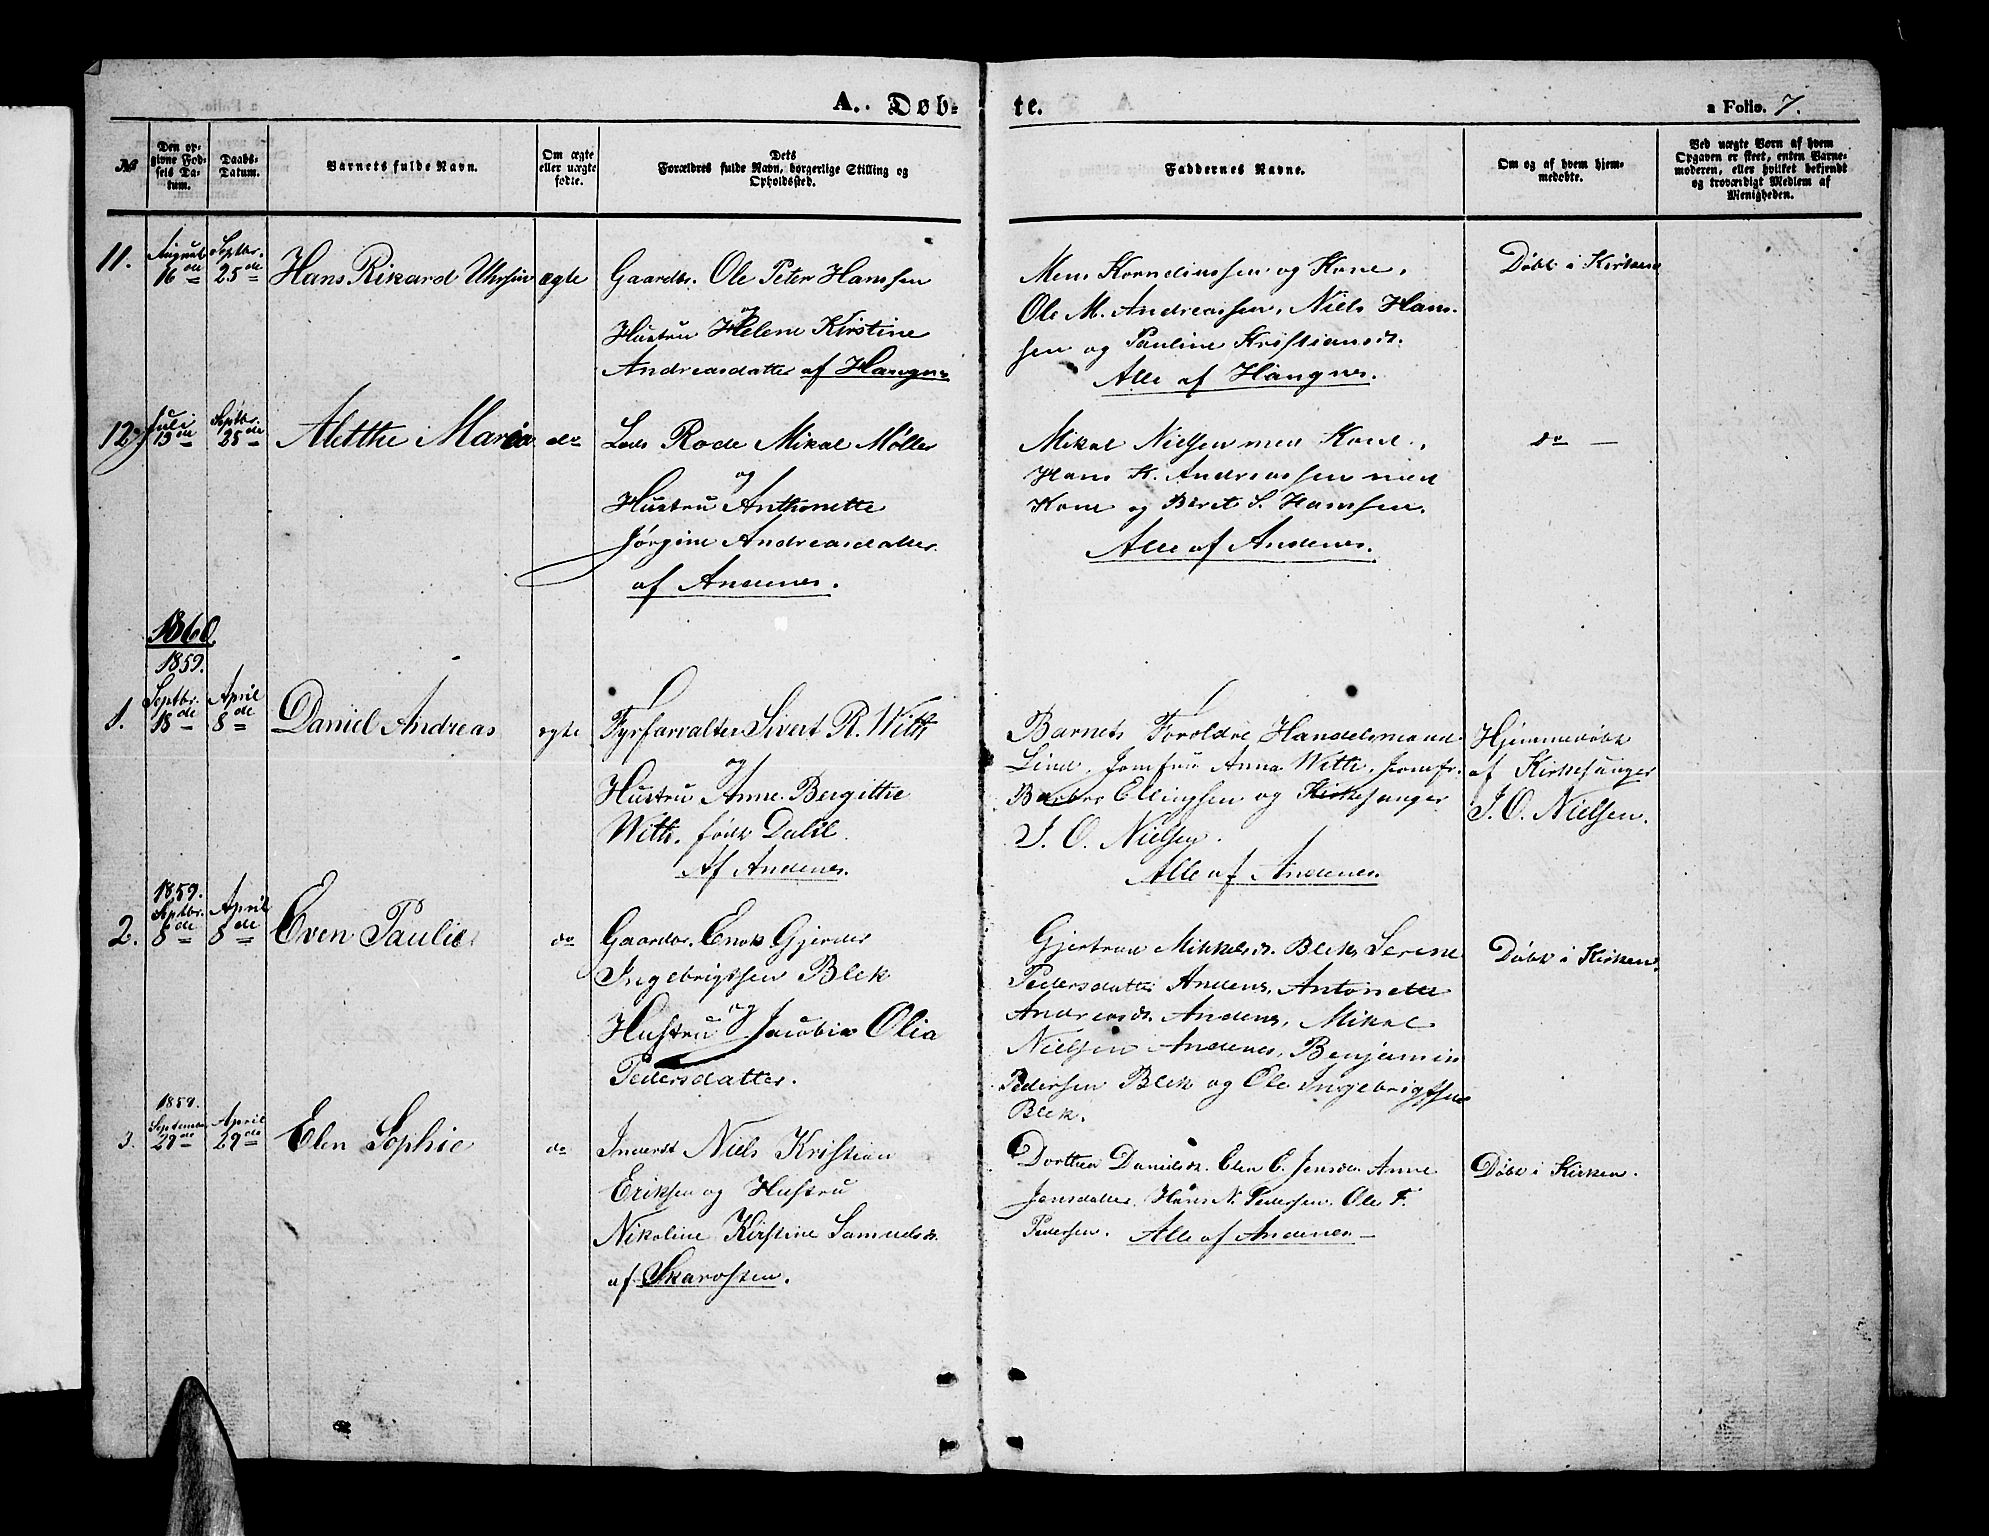 A. Døb-
te.
a Folio. 7.
№
Den op-
givne Fød-
sels Da-
tum.
Daabs-
Datum.
Barnets fulde Navn.
Om ægte
eller uægte
fødte.
Dets
Forældres fulde Navn, borgerlige Stilling og
Opholdssted.
Faddernes Navne.
Om og af hvem hjem-
medøbt.
Ved uægte Børn af hvem
Opgaven er skeet, enten Barne-
moderen, eller hvilket bekjendt
og troværdigt Medlem af
Menigheden.
11.
August
16de
Septbr.
25de
Hans Rikard
ægte
Gaardbr. Ole Peter Hanssen
og
Hustru Helene Kirstine
Andreasdatter af Haugnes
Mens Korneliussen og Kone,
Ole M. Andreassen, Niels Hans-
sen og Pauline Kristiansd.
Alle af Haugnes.
Døbt i Kirken
12.
Juli
Septbr.
25de
Aletthe Maria
do
Lods Rode Mikal Møller
og
Hustru Anthonette
Jørgine Andreasdatter
af Andenes.
Mikal Nielsen med Kone,
Hans K. Andreassen med
Kone og Berit S. Hanssen.
Alle af Andenes.
do —
1860.
1.
1859.
Septbr.
18de
April
8de
Daniel Andreas
egte
Fyrforvalter Sivert R. With
og
Hustru Anne Bergitthe
With. født Dahl.
Af Andenes.
Barnets Foroldre Handelsmand
Lind, Jomfru Anna With, Jomfr.
Barbro Ellingsen og Kirkesanger
J. O. Nielsen.
Alle af Andenes.
Hjemmedøbt
af Kirkesanger
J. O. Nielsen.
2.
1859.
Septbr.
8de
April
8de
Even Paulie
do
Gaardbr. Enok Gjerder
Ingebrigtsen Blek
og
Hustru Jacobia Olia
Pedersdatter.
Gjertrud Mikkelsd. Blek, Serene
Pedersdatter Andens, Antonette
Andreasd. Andens, Mikal
Nielsen Andenes, Benjamin
Pedersen Blek og Ole Ingebrigtsen
Blek.
Døbt i Kirken.
3.
1859.
September
29de
April
29de
Elen Sophie
do
Inderst Niels Kristian
Eriksen og Hustru
Nikoline Kirstine Samuelsd.
af Skarvsten.
Dorthea Danielsd. Elen C. Jensd. Anne
Jensdatter. Hans N. Pedersen. Ole F.
Pedersen. Alle af Andenes—
Døbt i Kirken.